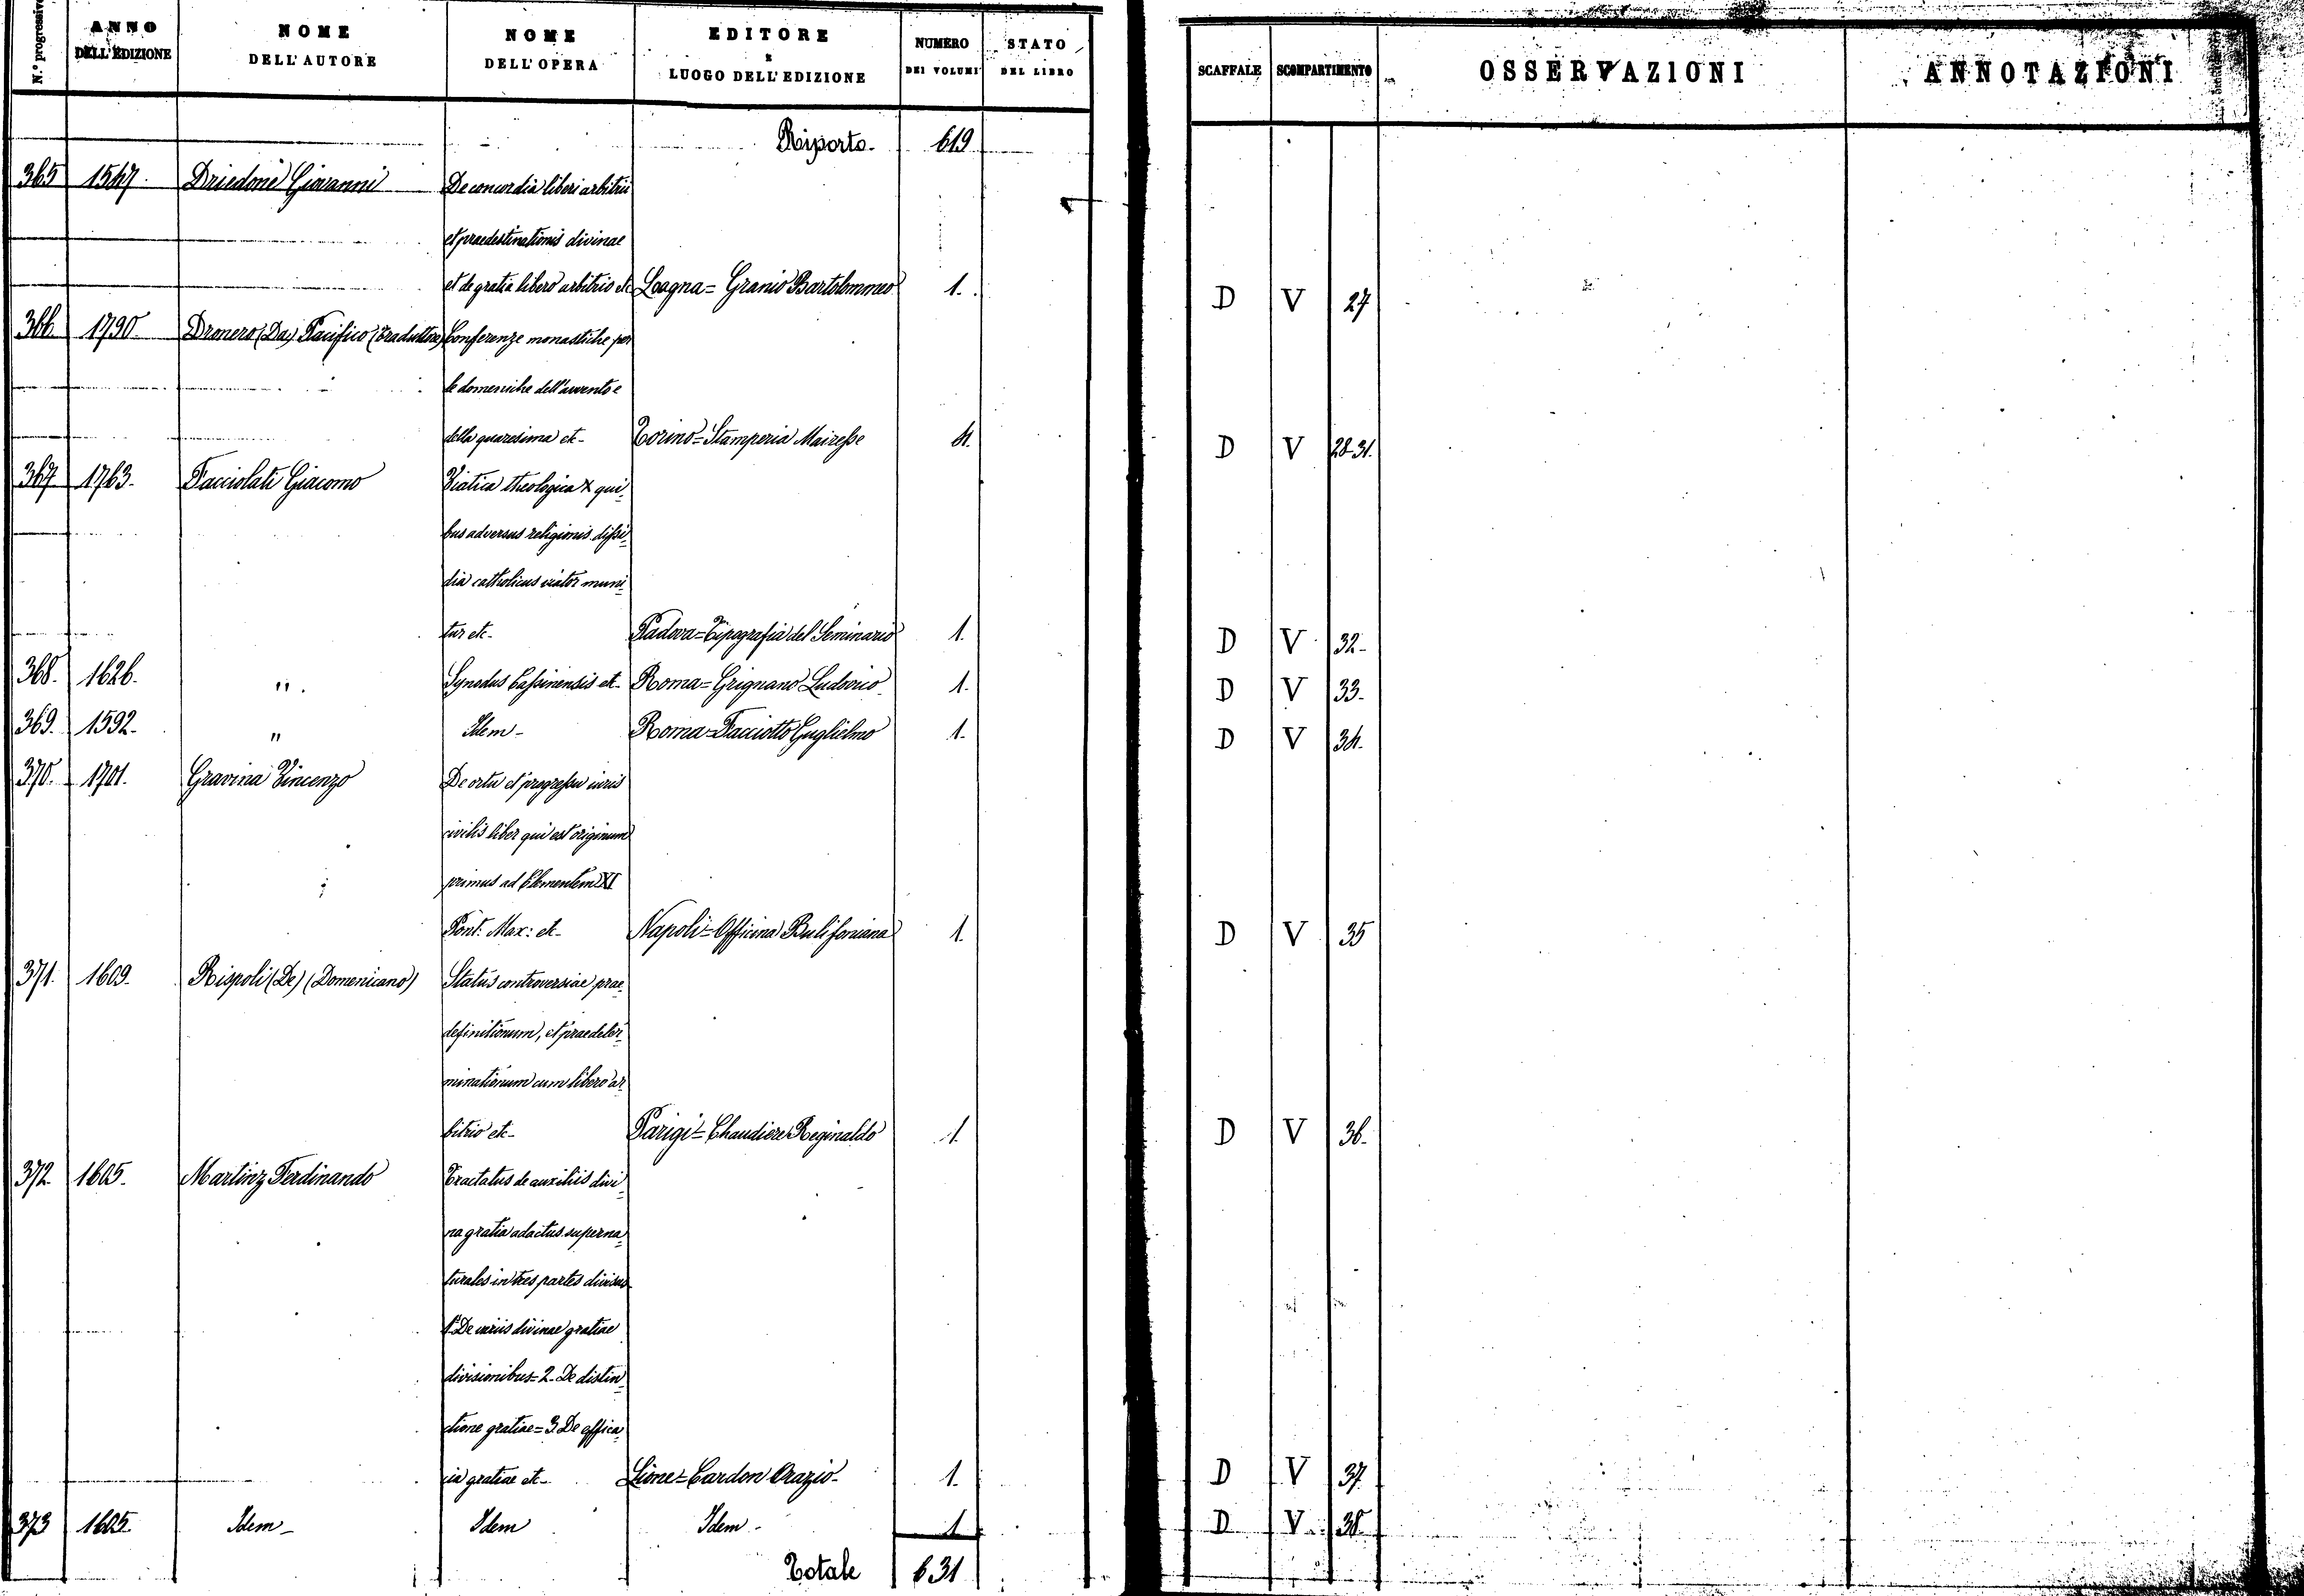 N.° progressivo
ANNO DELL'EDIZIONE
NOME DELL'AUTORE
NOME DELL'OPERA
EDITORE E LUOGO DELL'EDIZIONE
NUMERO DEI VOLUMI
STATO DEL LIBRO
SCAFFALE
SCOMPARTIMENTO
OSSERVAZIONI
ANNOTAZIONI
Riporto- 619
365 1547. Driedone Giovanni De concordia liberi arbitrii
et praedestinationis divinae
et de gratia libero arbitrio etc Loagna= Granio Bartolommeo 1. D V 27
366. 1790. Dronero (Da) Pacifico (traduttore) Conferenze monastiche per
le domeniche dell'avvento e
della quaresima etc- Torino= Stamperia Mairesse 4. D V 28-31.
367. 1763. Facciolati Giacomo Viatica theologica X qui-
bus adversus religionis dissi-
dia catholicus viator muni-
tur etc- Padova= Tipografia del Seminario 1. D V 32-
368. 1626. " Synodus Cassinensis etc- Roma= Grignano Ludovico 1. D V 33-
369. 1592. " Idem- Roma= Facciotto Guglielmo 1. D V 34.
370. 1701. Gravina Vincenzo De ortu et progressu iuris
civilis liber qui est originum
primus ad Clementem XI
Pont: Max: etc- Napoli= Officina Bulifoniana 1. D V 35
371. 1609. Rispoli (De) (Domenicano) Status controversiae prae-
definitionum, et praedeter-
minationum cum libero ar-
bitrio etc- Parigi= Chaudiere Reginaldo 1. D V 36.
372. 1605. Martinz Ferdinando Tractatus de auxiliis divi-
na gratia ad actus superna-
turales in tres partes divisus-
1° De variis divinae gratiae
divisionibus= 2- De distin-
ctione gratiae= 3. De effica-
cia gratiae etc- Lione= Cardon Orazio- 1. D V 37.
373 1605. Idem- Idem Idem- 1 D V 38
Totale 631